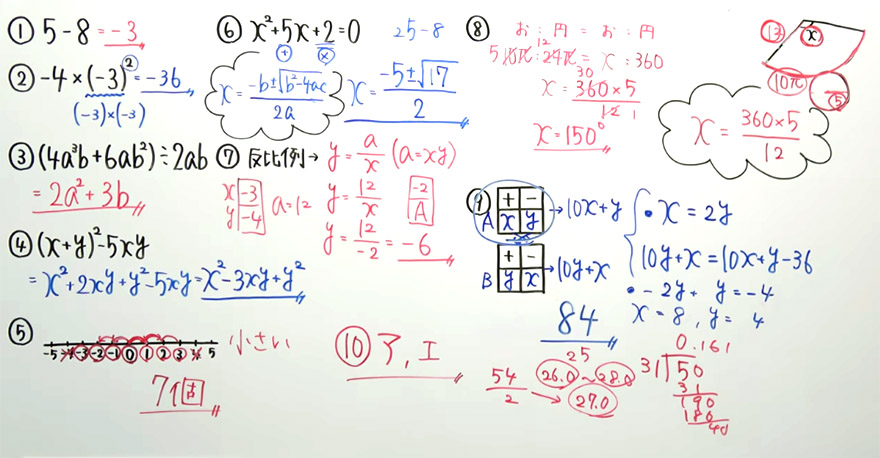 ① 5-8=-3
② -4×(-3)²=-36
(-3)×(-3)
③ (4a³b+6ab²)÷2ab
=2a²+3b
④ (x+y)²-5xy
=x²+2xy+y²-5xy=x²-3xy+y²
⑤
-5 -4 -3 -2 -1 0 1 2 3 4 5 小さい
7個
⑥ x²+5x+2=0 25-8
+ ×
x=(-b±√(b²-4ac))/2a x=(-5±√17)/2
⑦ 反比例→ y=a/x (a=xy)
x -3
y -4
a=12 y=12/x
-2
A
y=12/-2=-6
⑧ お:円=お:円
12
5 10π:24π=x:360
30
x=360×5/12 1
x=150°
12 x
10π
5
x=360×5/12
⑨
A + - x y →10x+y
B + - y x →10y+x
• x=2y
10y+x=10x+y-36
• -2y+ y=-4
x=8, y=4
84
⑩ ア, エ
25
54/2 26.0~28.0
27.0
0.161
31 50
31
190
186
40